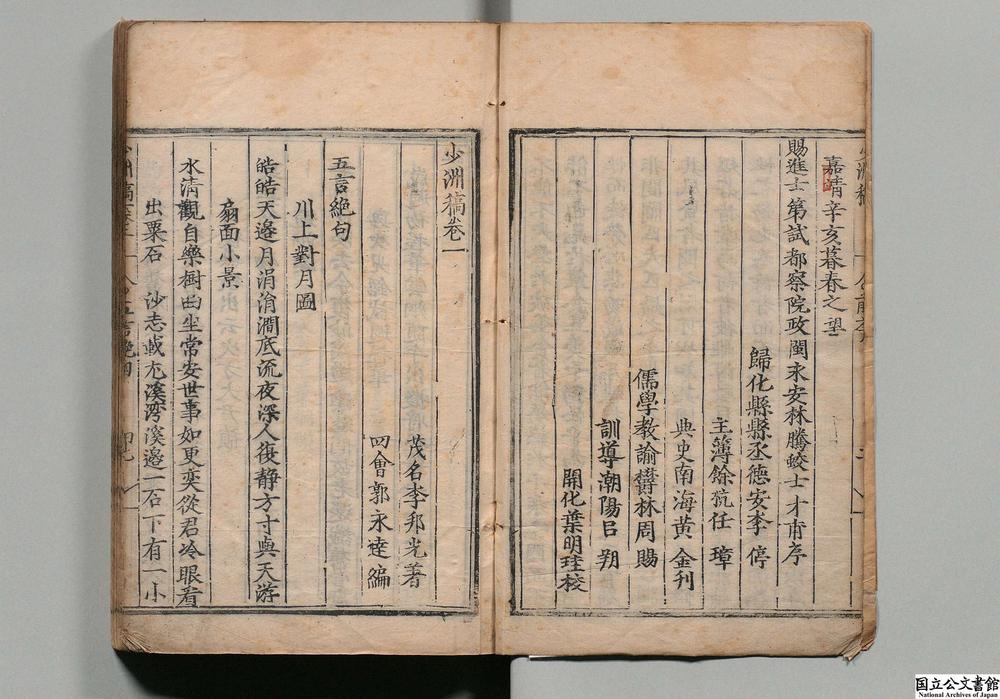 嘉靖辛亥暮春之望
賜進士第試都察院政閩永安林騰蛟士才甫序
歸化縣縣丞德安李 停
主簿餘杭任 璋
典史南海黃 金刊
儒學教諭欝林周 賜
訓導潮陽呂 朔
開化葉明珪校
少洲稿卷一
茂名李邦光著
四會郭永達編
五言絕句
川上對月圖
皓皓天邊月涓涓澗底流夜深人復静方寸與天游
扇面小景
水清觀自樂樹曲坐常安世事如更奕從君冷眼看
出粟石 沙志載尤溪湾溪邉一石下有一小
国立公文書館
National Archives of Japan